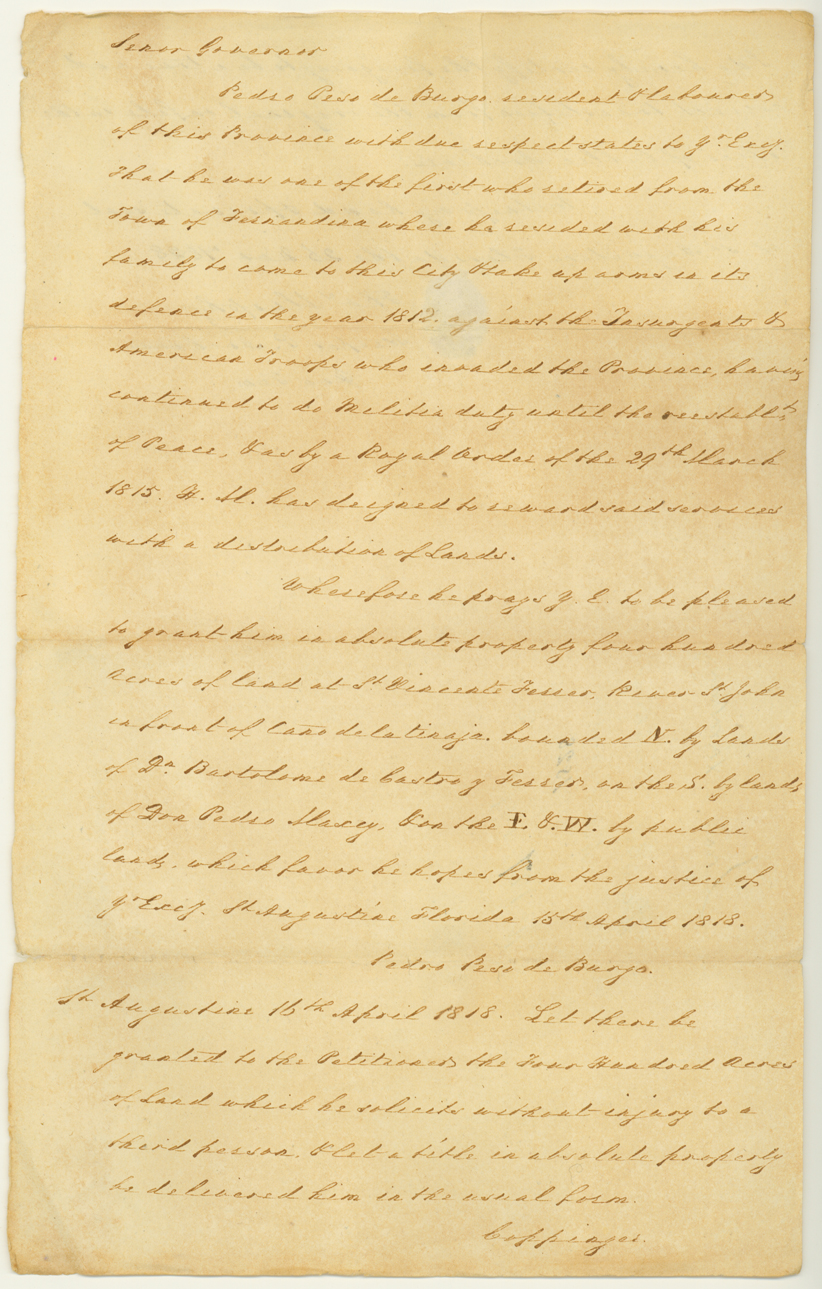 Senor Governor
Pedro Peso de Burgo resident & labourer
of this Province with due respect states to Yr. Excy.
That he was one of the first who retired from the
Town of Fernandina where he resided with his
family to come to this City & take up arms in its
defence in the year 1812. against the Insurgents &
American Troops who invaded the Province, having
continued to do Militia duty until the reestablt.
of Peace, & as by a Royal Order of the 29th March
1815. H. M. has deigned to reward said services
with a distribution of Lands.
Wherefore he prays Y. E. to be pleased
to grant him in absolute property four hundred
acres of land at St. Vincente Ferrer, River St. John
in front of Cano de la tinaja. bounded N. by Lands
of Dn. Bartolome de Castro y Ferrer, on the S. by lands
of Don Pedro Maxey, & on the E. & W. by public
lands. which favor he hopes from the justice of
Yr Excy. St Augustine Florida 15th April 1818.
Pedro Peso de Burgo.
St. Augustine 16th April 1818. Let there be
granted to the Petitioner the Four Hundred Acres
of Land which he solicits without injury to a
third person. & let a title in absolute property
be delivered him in the usual form.
Coppinger.